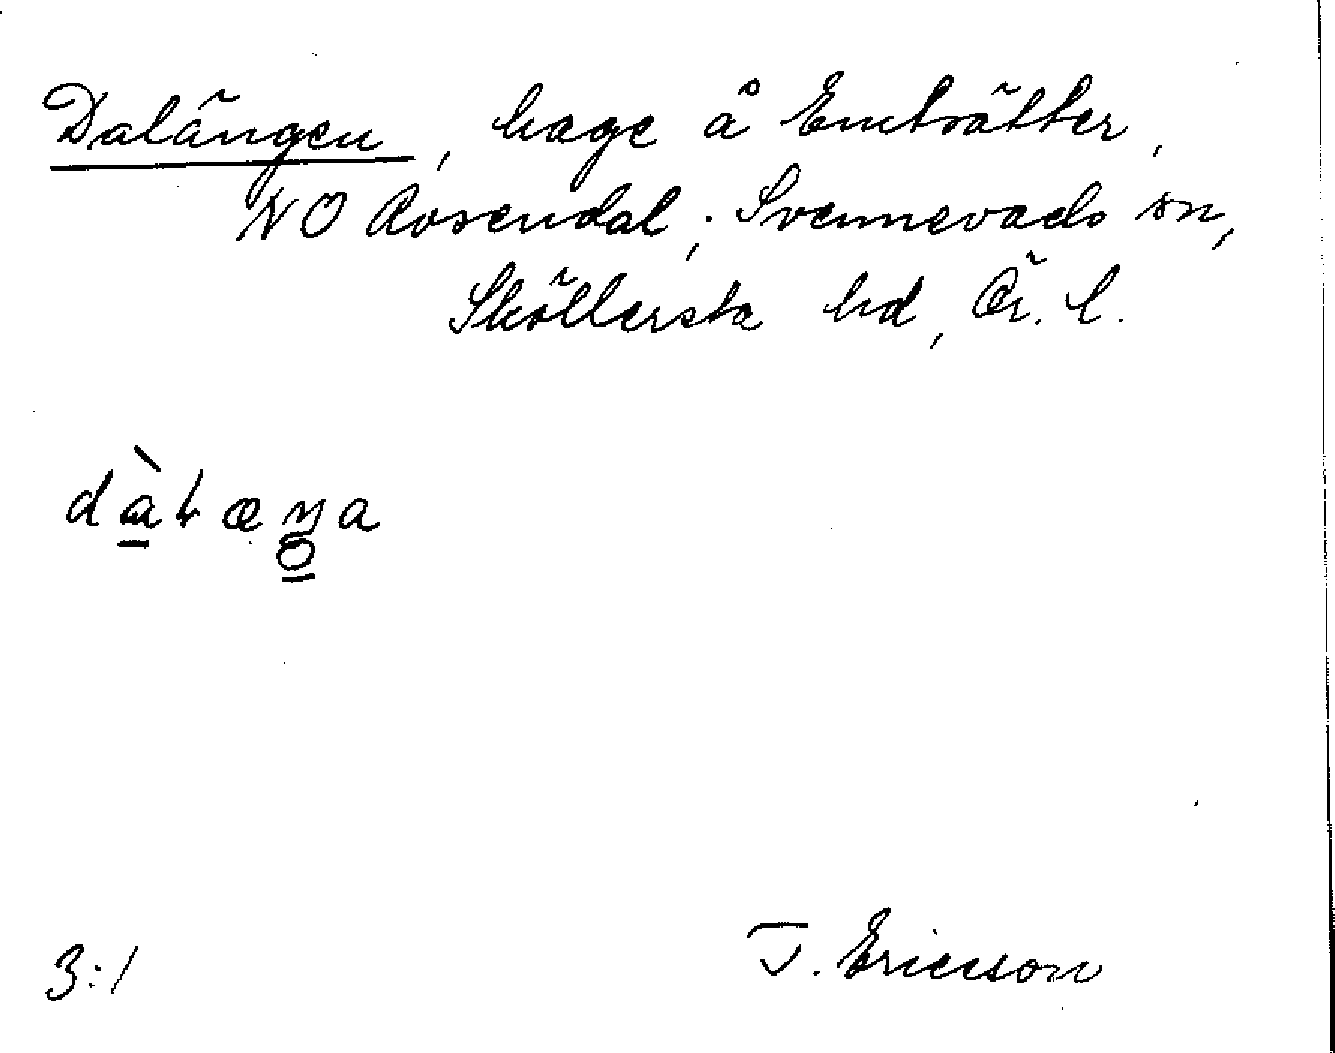 Dalängen, hage å Emtrötter,
NO Rosendal; Svennevads sn,
Sköllersta hd, Ör. l.
dàlæŋa
3:1
T. Ericsson